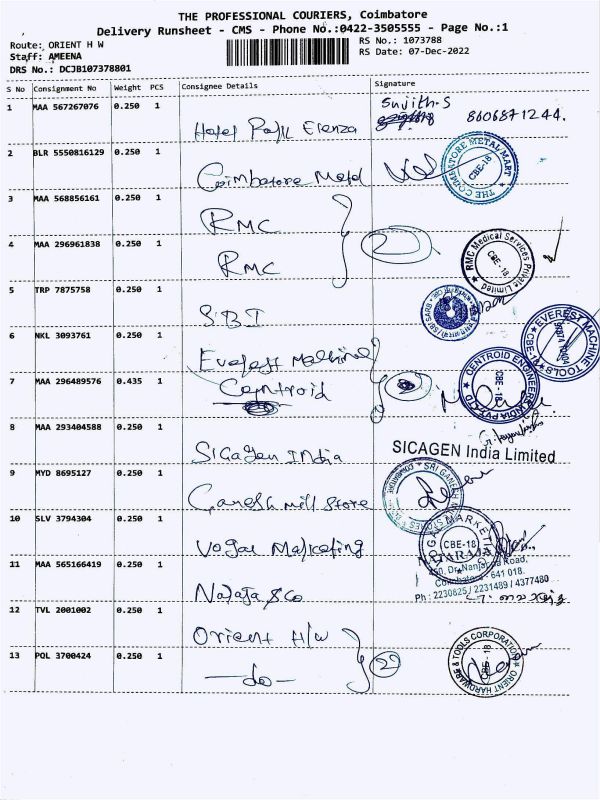 THE PROFESSIONAL COURIERS, Coimbatore
Delivery Runsheet - CMS - Phone No.:0422-3505555 - Page No.:1
Route: ORIENT H W
RS No.: 1073788
Staff: AMEENA
RS Date: 07-Dec-2022
DRS No.: DCJB107378801
S No Consignment No Weight PCS Consignee Details Signature
1 MAA 567267076 0.250 1
Sujith.S
8606871244.
Hotel
2 BLR 5550816129 0.250 1
Coimbatore Metal
THE COIMBATORE METAL MART
CBE-18
3 MAA 568856161 0.250 1
RMC
4 MAA 296961838 0.250 1
RMC
2
RMC Medical Services Private Limited
CBE-18
5 TRP 7875758 0.250 1
SBI
6 NKL 3093761 0.250 1
EVEREST MACHINE TOOLS
CBE-18
7 MAA 296489576 0.435 1
Centroid
2
CENTROID ENGINEERS INDIA PVT LTD
CBE-18
8 MAA 293404588 0.250 1
Sicagen India
SICAGEN India Limited
9 MYD 8695127 0.250 1
Ganesh Mill Store
SRI GANESH
10 SLV 3794304 0.250 1
Marketing
MARKETING
CBE-18
11 MAA 565166419 0.250 1
Nagaraja & Co
NAGARAJA
Dr. Nanjappa Road,
Coimbatore - 641 018.
Ph : 2230825 / 2231489 / 4377480
12 TVL 2001002 0.250 1
Orient H/W
13 POL 3700424 0.250 1
-do-
2
ORIENT HARDWARE & TOOLS CORPORATION
CBE-18